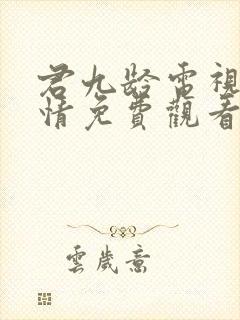 君九龄電視
情免費觀看
雲歲意